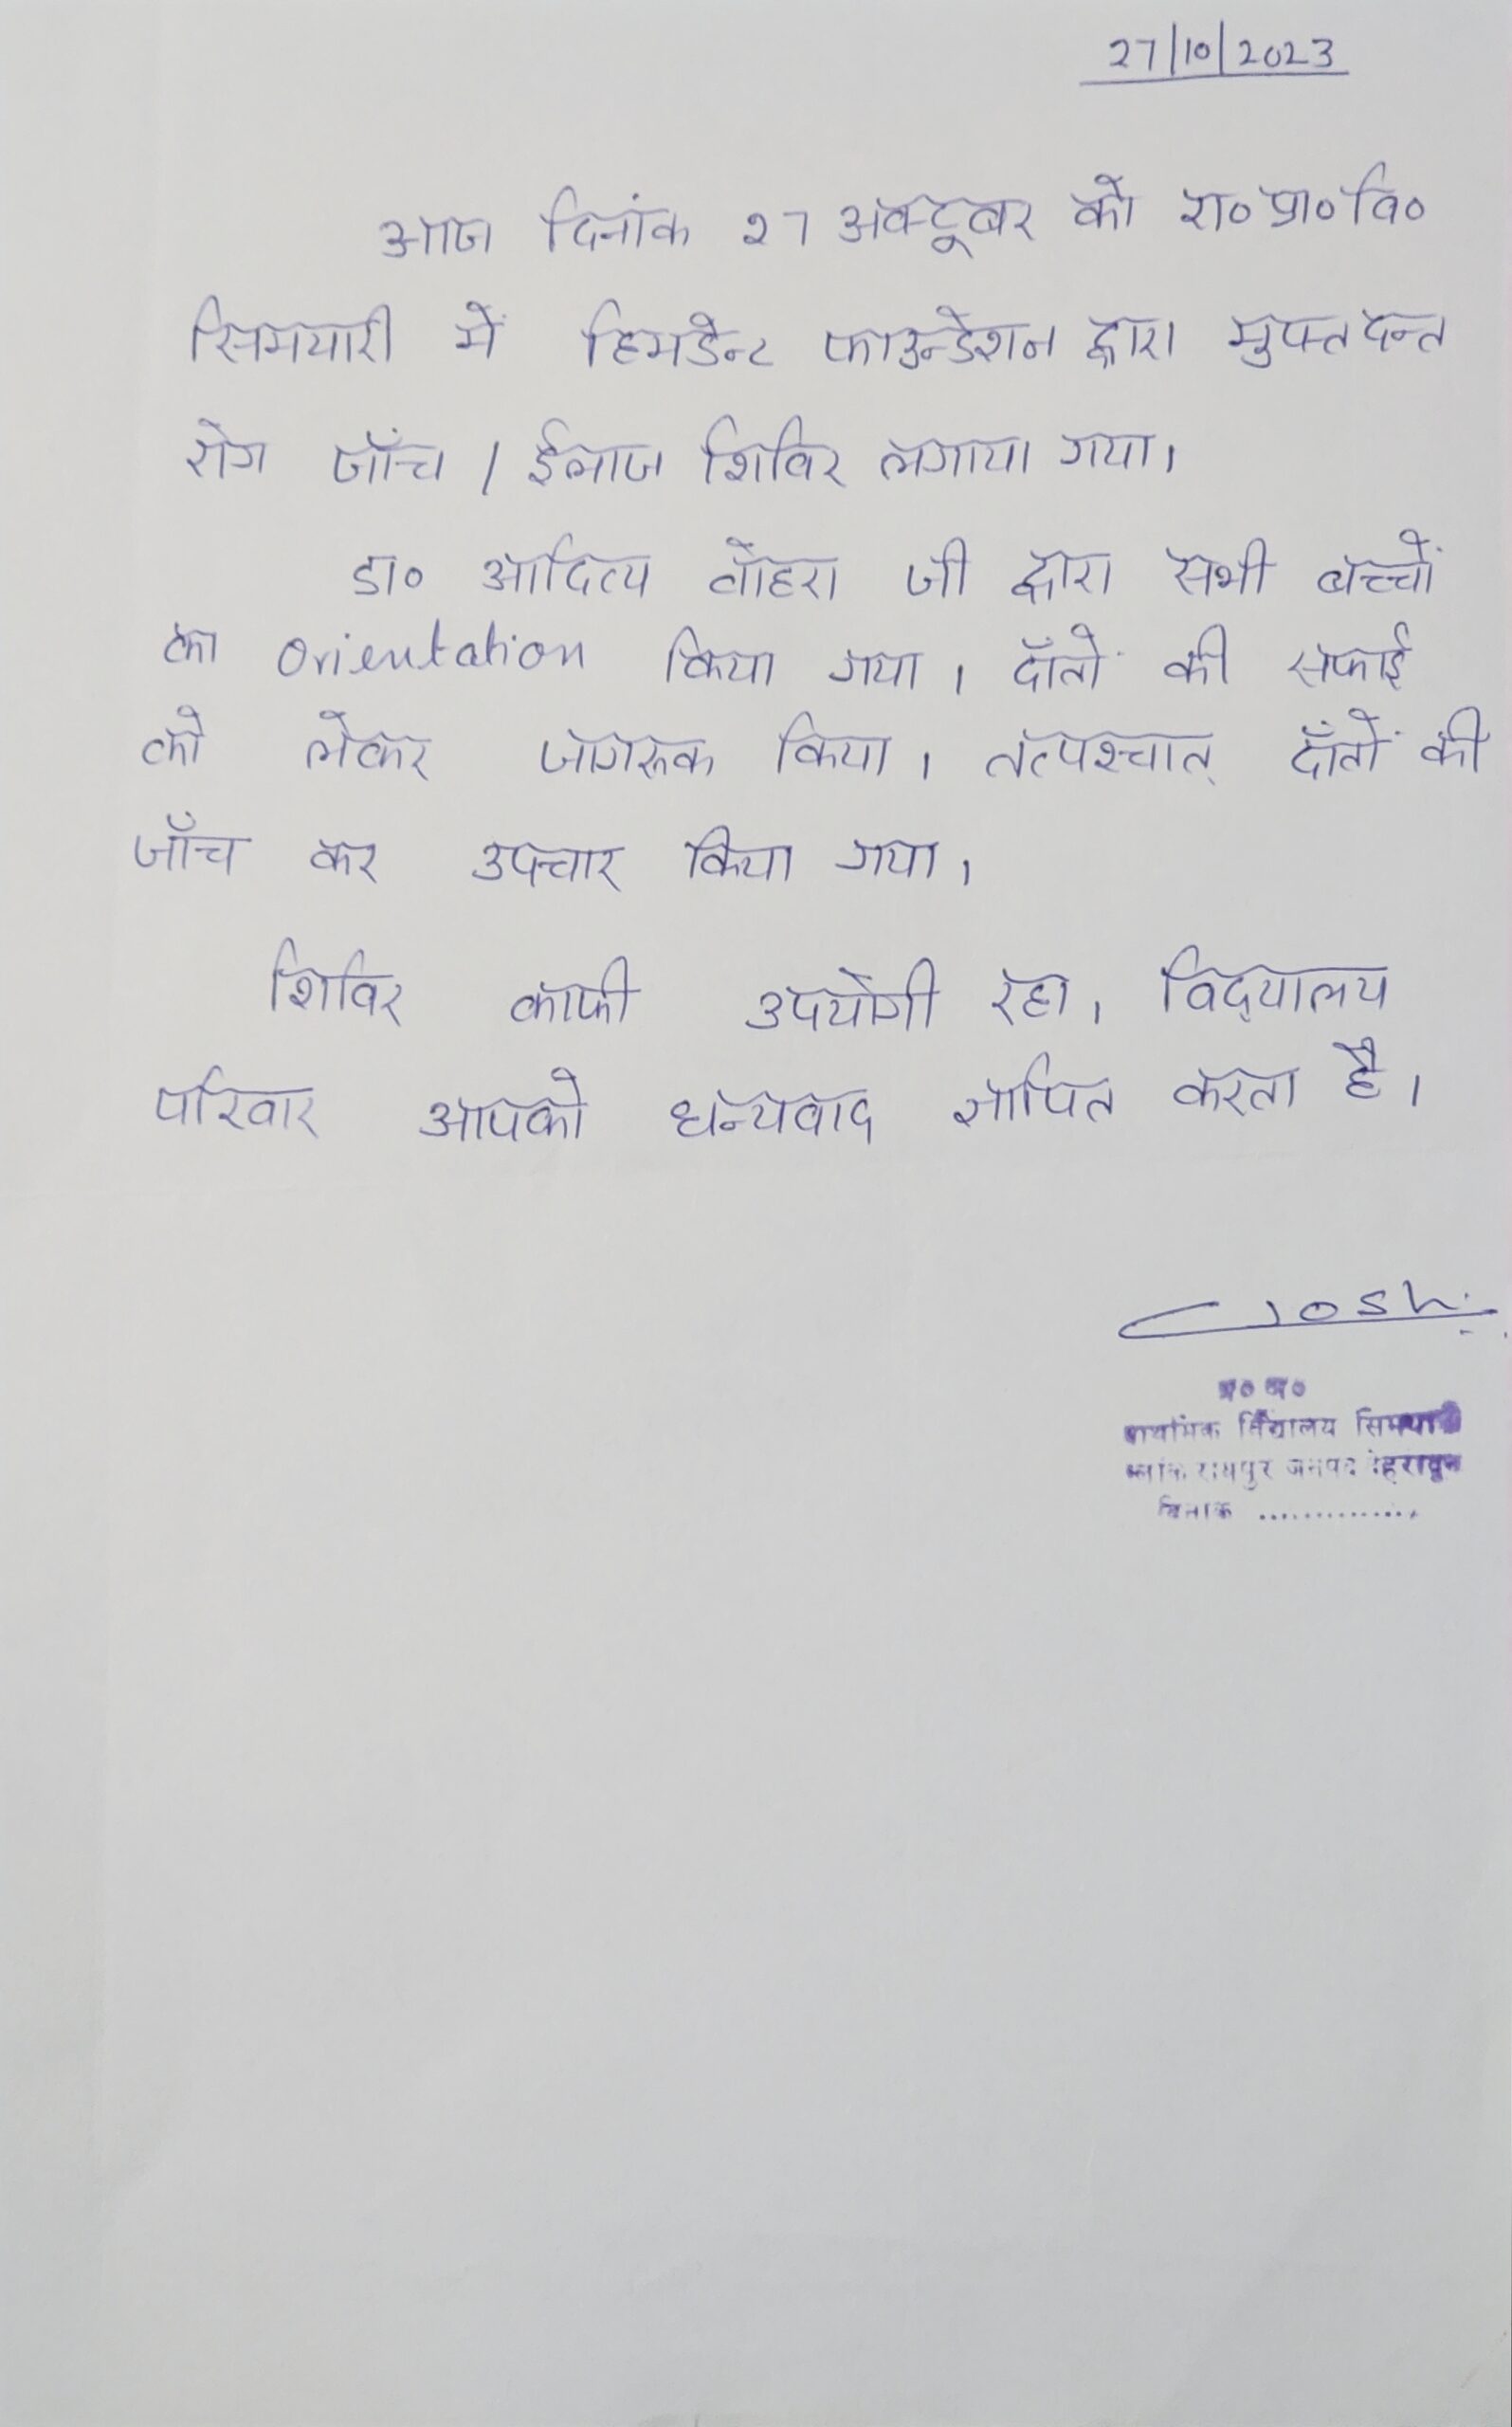 27/10/2023
आज दिनांक 27 अक्टूबर को रा० प्रा० वि०
सिमयारी में हिमडेन्ट फाउन्डेशन द्वारा मुफ्त दन्त
रोग जाँच / ईलाज शिविर लगाया गया।
डा० आदित्य वोहरा जी द्वारा सभी बच्चों
का orientation किया गया। दाँतों की सफाई
को लेकर जागरूक किया। तत्पश्चात् दाँतों की
जाँच कर उपचार किया गया।
शिविर काफी उपयोगी रहा। विद्यालय
परिवार आपको धन्यवाद ज्ञापित करता है।
प्र० अ०
प्राथमिक विद्यालय सिमयारी
ब्लाक रायपुर जनपद देहरादून
दिनांक ..............